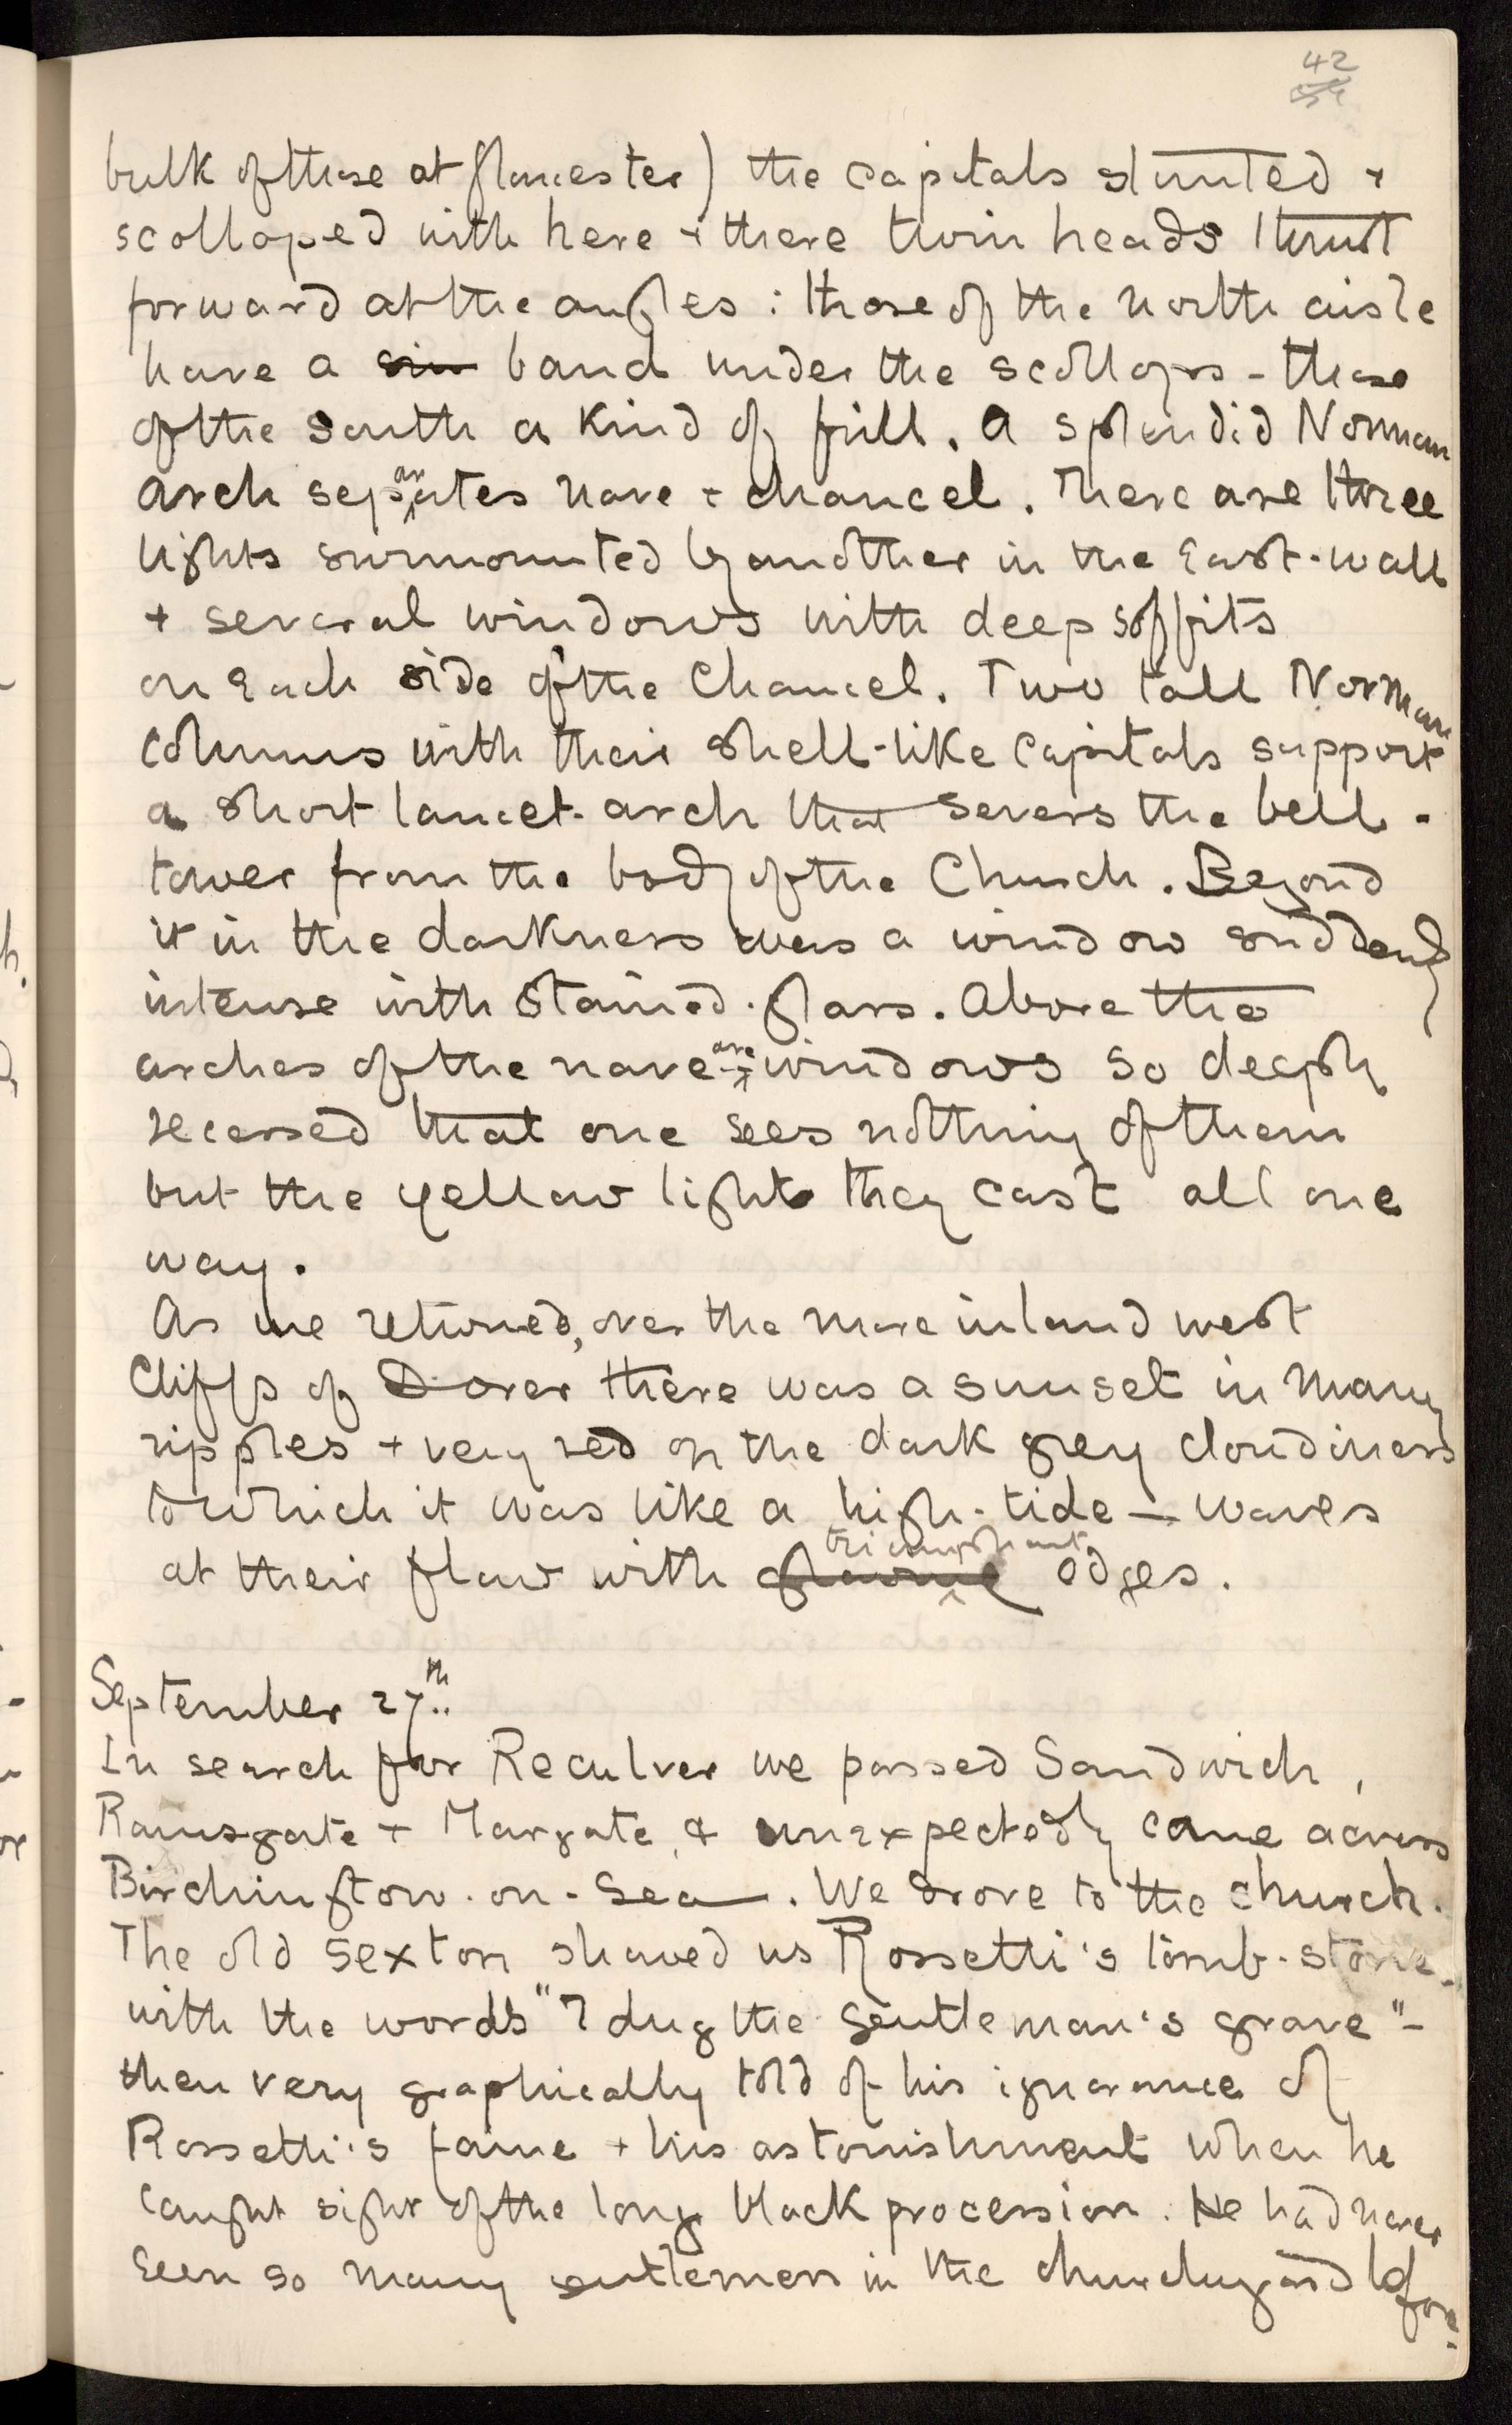 42
bulk of those at Gloucester) the capitals stunted +
scolloped with here + there twin heads thrust
forward at the angles : those of the north aisle
have a sin band under the scollops - those
of the south a kind of frill. A splendid Norman
arch separates nave + chancel. There are three
lights surmounted by another in the East-wall
+ several windows with deep soffits
on Each side of the Chancel. Two tall Norman
columns with their shell-like capitals support
a short lancet-arch that severs the bell-
tower from the body of the Church. Beyond
it in the darkness was a window suddenly
intense with stained-glass. Above the
arches of the nave are windows so deeply
recessed that one sees nothing of them
but the yellow light they cast all one
way.
As we returned, over the more inland west
Cliffs of Dover there was a sunset in many
ripples + very red on the dark grey cloudiness
to which it was like a high-tide – waves
at their flow with triumphant edges.
September 27th
In search for Reculver we passed Sandwich,
Ramsgate + Margate, & unexpectedly came across
Birchington-on-Sea. We drove to the church.
The old sexton showed us Rossetti's tomb-stone
with the words "I dug the gentleman's grave" -
then very graphically told of his ignorance of
Rossetti's fame + his astonishment when he
caught sight of the long black procession. He had never
seen so many gentlemen in the churchyard before.